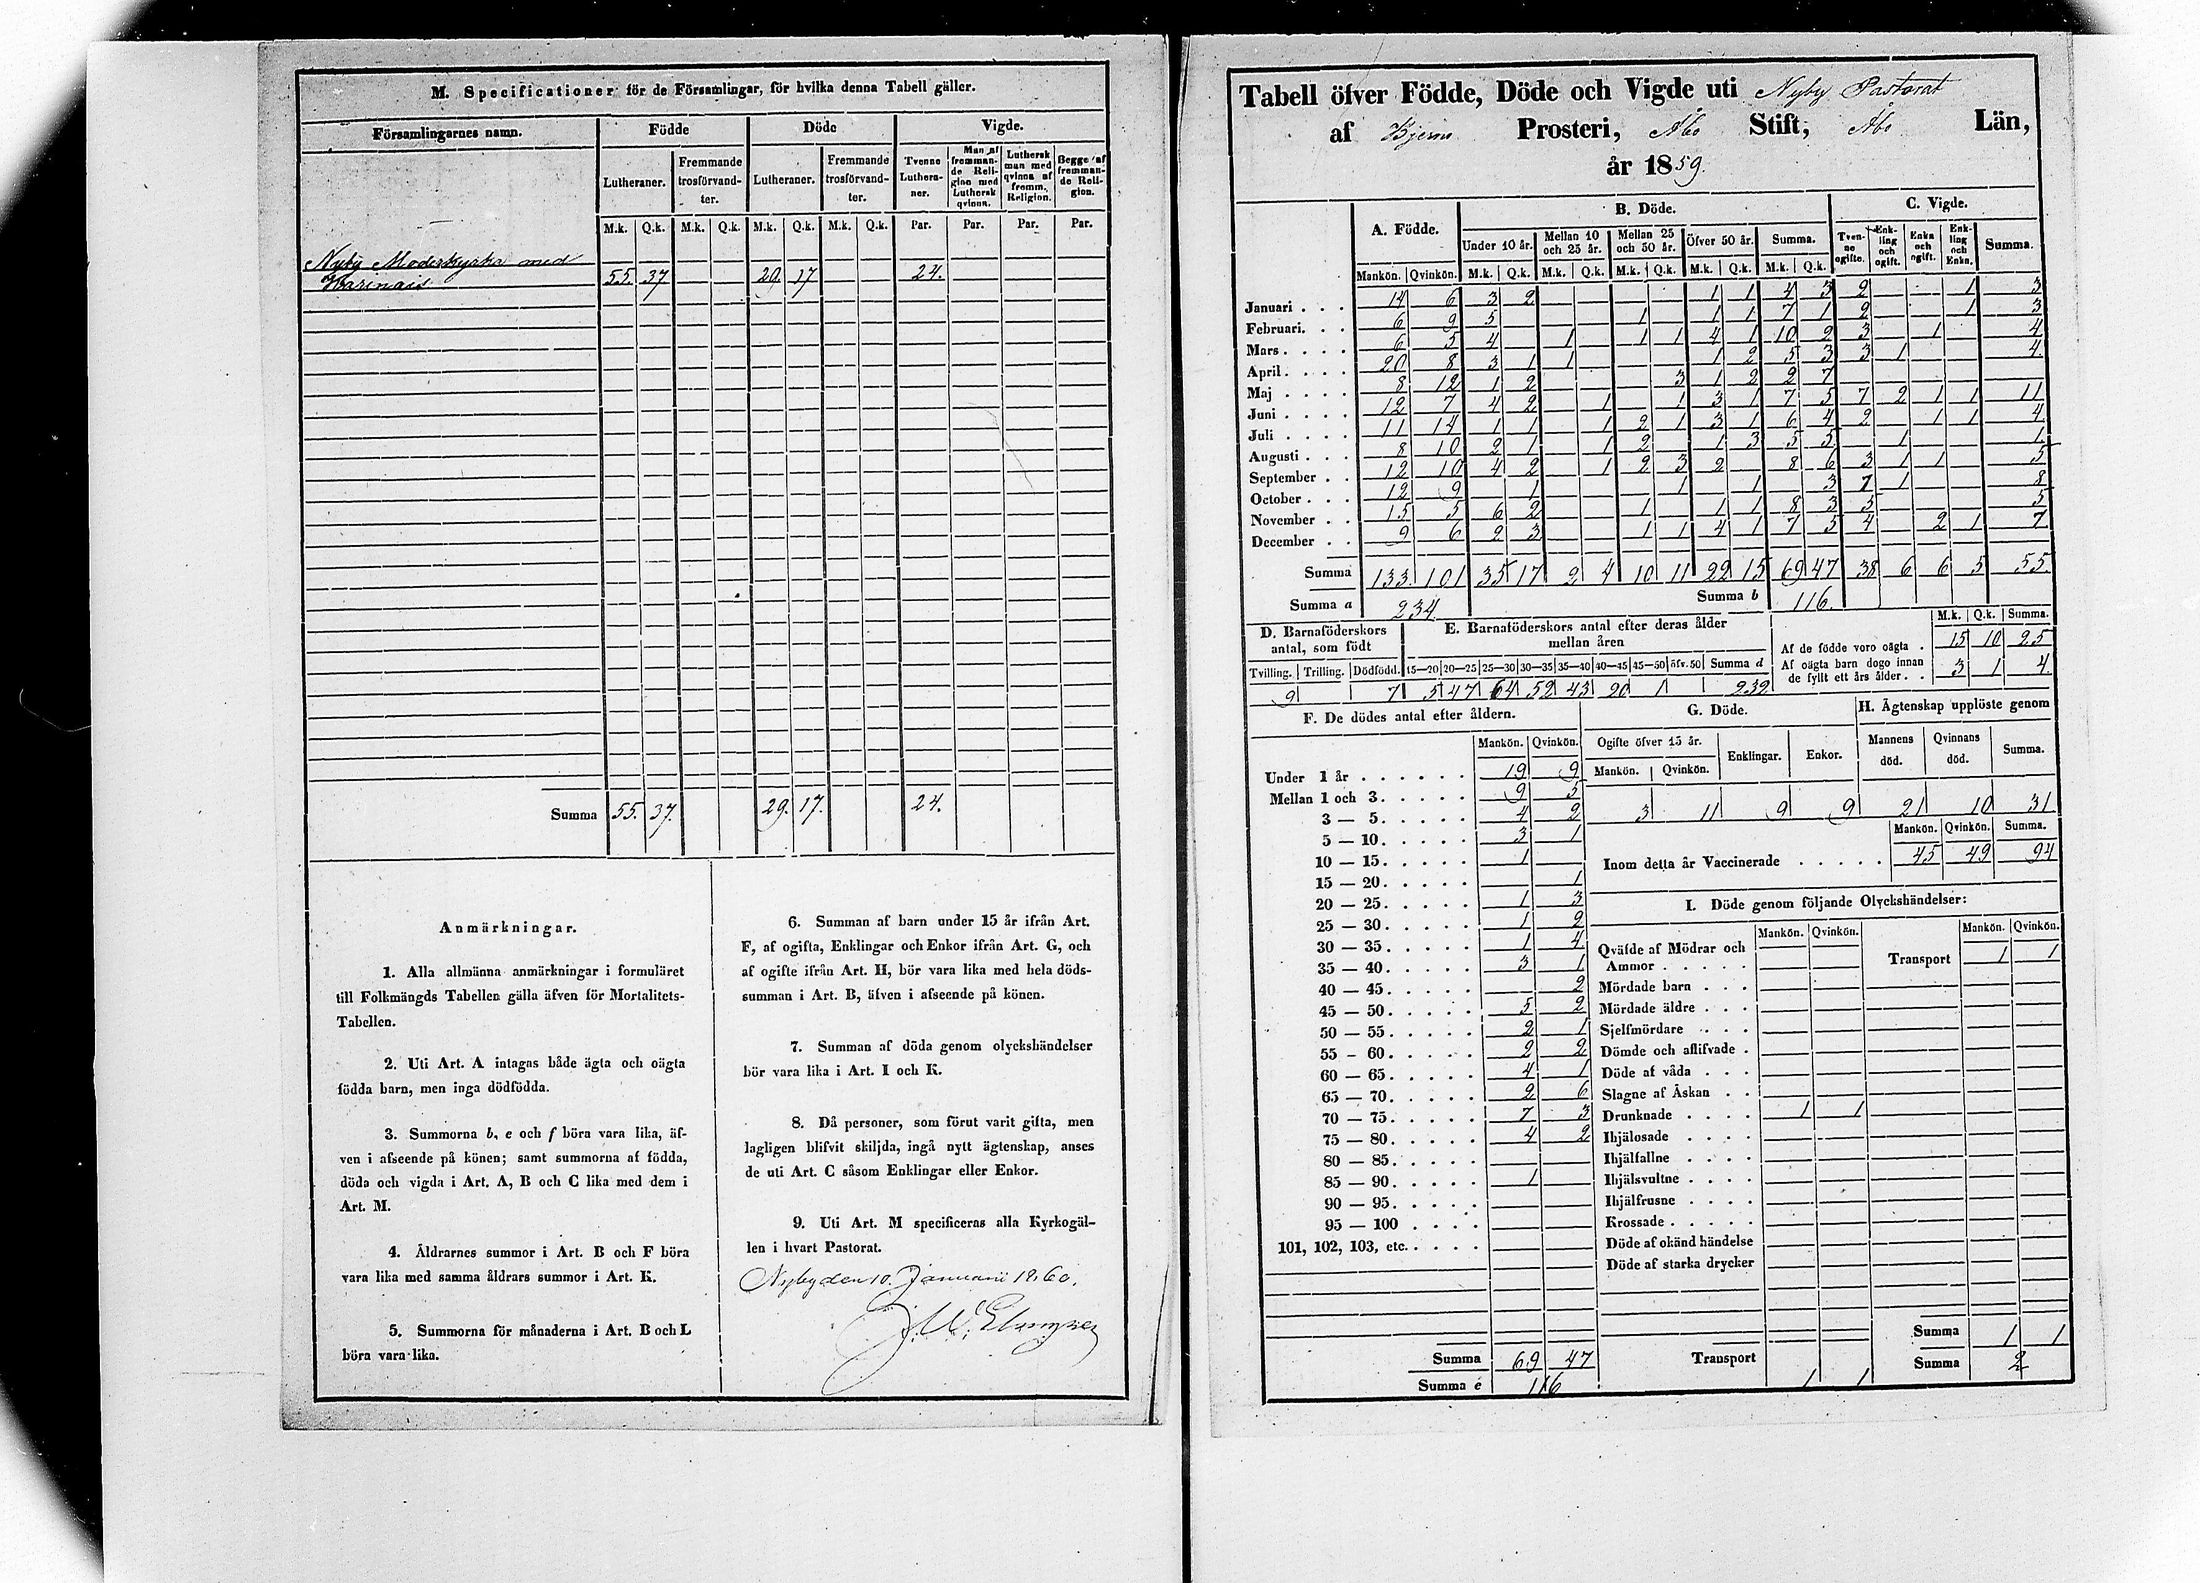 M. Specificationer för de Församlingar, för hvilka denna Tabell gäller.
Församlingarnes namn. Födde Döde Vigde.
Lutheraner. Fremmande trosförvandter. Lutheraner. Fremmande trosförvandter. Tvenne Lutheraner. Man af fremmande Religion med Luthersk qvinna. Luthersk man med qvinna af fremm. Religion. Begge af fremmande Religion.
M.k. Q.k. M.k. Q.k. M.k. Q.k. M.k. Q.k. Par. Par. Par. Par.
Nyby Moderkyrka med
Karinais 55. 37. 29. 17. 24.
Summa 55. 37. 29. 17. 24.
Anmärkningar.
1. Alla allmänna anmärkningar i formuläret
till Folkmängds Tabellen gälla äfven för Mortalitets-
Tabellen.
2. Uti Art. A intagas både ägta och oägta
födda barn, men inga dödfödda.
3. Summorna b, e och f böra vara lika, äf-
ven i afseende på könen; samt summorna af födda,
döda och vigda i Art. A, B och C lika med dem i
Art. M.
4. Åldrarnes summor i Art. B och F böra
vara lika med samma åldrars summor i Art. K.
5. Summorna för månaderna i Art. B och L
böra vara lika.
6. Summan af barn under 15 år ifrån Art.
F, af ogifta, Enklingar och Enkor ifrån Art. G, och
af ogifte ifrån Art. H, bör vara lika med hela döds-
summan i Art. B, äfven i afseende på könen.
7. Summan af döda genom olyckshändelser
bör vara lika i Art. I och K.
8. Då personer, som förut varit gifta, men
lagligen blifvit skiljda, ingå nytt ägtenskap, anses
de uti Art. C såsom Enklingar eller Enkor.
9. Uti Art. M specificeras alla Kyrkogäl-
len i hvart Pastorat.
Nyby den 10. Januarii 1860.
Tabell öfver Födde, Döde och Vigde uti Nyby Pastorat
af Bjerno Prosteri, Åbo Stift, Åbo Län,
år 1859.
A. Födde. B. Döde. C. Vigde.
Under 10 år. Mellan 10 och 25 år. Mellan 25 och 50 år. Öfver 50 år. Summa. Tvenne ogifte. Enkling och ogift. Enka och ogift. Enkling och Enka. Summa.
Mankön. Qvinkön. M.k. Q.k. M.k. Q.k. M.k. Q.k. M.k. Q.k. M.k. Q.k.
Januari . . . 14 6 3 2 1 1 4 3 2 1 3
Februari. . . 6 9 5 1 1 1 7 1 2 1 3
Mars . . . . 6 5 4 1 1 1 4 1 10 2 3 1 4
April . . . . 20 8 3 1 1 1 2 5 3 3 1 4
Maj . . . . 8 12 1 2 3 1 2 2 7
Juni . . . . 12 7 4 2 1 1 3 1 7 5 7 2 1 1 11
Juli . . . . 11 14 1 1 1 2 1 3 1 6 4 2 1 1 4
Augusti . . . 8 10 2 1 1 2 1 3 5 5 1 1
September . . 12 10 4 2 1 2 3 2 8 6 3 1 1 5
October . . . 12 9 1 1 1 3 7 1 8
November . . 15 5 6 2 1 1 1 8 3 5 5
December . . 9 6 2 3 1 1 4 1 7 5 4 2 1 7
Summa 133 101 35 17 2 4 10 11 22 15 69 47 38 6 6 5 55
Summa a 234 Summa b 116.
D. Barnaföderskors antal, som födt E. Barnaföderskors antal efter deras ålder mellan åren
Tvilling. Trilling. Dödfödd. 15—20 20—25 25—30 30—35 35—40 40—45 45—50 öfv.50 Summa d
9 7 5 47 64 52 43 20 1 232
M.k. Q.k. Summa.
Af de födde voro oägta . 15 10 25
Af oägta barn dogo innan
de fyllt ett års ålder . . 3 1 4.
F. De dödes antal efter åldern.
Mankön. Qvinkön.
Under 1 år . . . . . . 19 9
Mellan 1 och 3. . . . . 9 5
3 — 5. . . . . 4 2
5 — 10. . . . . 3 1
10 — 15. . . . . 1
15 — 20. . . . . 1
20 — 25. . . . . 1 3
25 — 30. . . . . 1 2
30 — 35. . . . . 1 4
35 — 40. . . . . 3 1
40 — 45. . . . . 2
45 — 50. . . . . 5 2
50 — 55. . . . . 2 1
55 - 60. . . . . 2 2
60 — 65. . . . . 4 1
65 — 70. . . . . 2 6
70 — 75. . . . . 7 3
75 — 80. . . . . 4 2
80 — 85. . . . .
85 — 90. . . . . 1
90 — 95. . . . .
95 — 100 . . . .
101, 102, 103, etc. . . . .
Summa 69 47
Summa e 116
G. Döde.
Ogifte öfver 15 år. Enklingar. Enkor.
Mankön. Qvinkön.
3 11 9 9
H. Ägtenskap upplöste genom
Mannens död. Qvinnans död. Summa.
21 10 31
Mankön. Qvinkön. Summa.
Inom detta år Vaccinerade . . . . . 45 49 94
I. Döde genom följande Olyckshändelser:
Mankön. Qvinkön. Mankön. Qvinkön.
Qväfde af Mödrar och
Ammor . . . . . Transport 1 1
Mördade barn . . .
Mördade äldre . . .
Sjelfmördare . . .
Dömde och aflifvade .
Döde af våda . . .
Slagne af Åskan . .
Drunknade . . . . 1 1
Ihjälosade . . . .
Ihjälfallne . . . .
Ihjälsvultne . . . .
Ihjälfrusne . . . .
Krossade . . . . .
Döde af okänd händelse
Döde af starka drycker
Summa 1 1
Transport 1 1 Summa 2